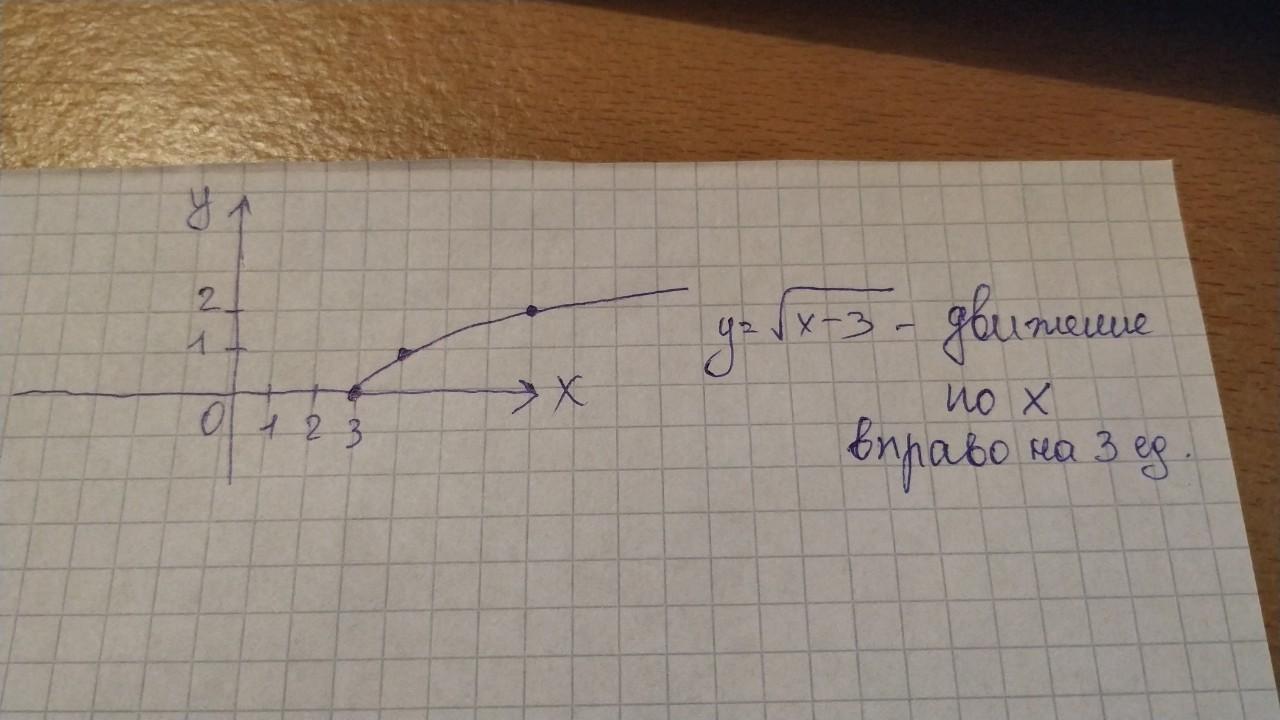 y
2
1
0 1 2 3
x
y=√x-3 - движение
по x
вправо на 3 ед.